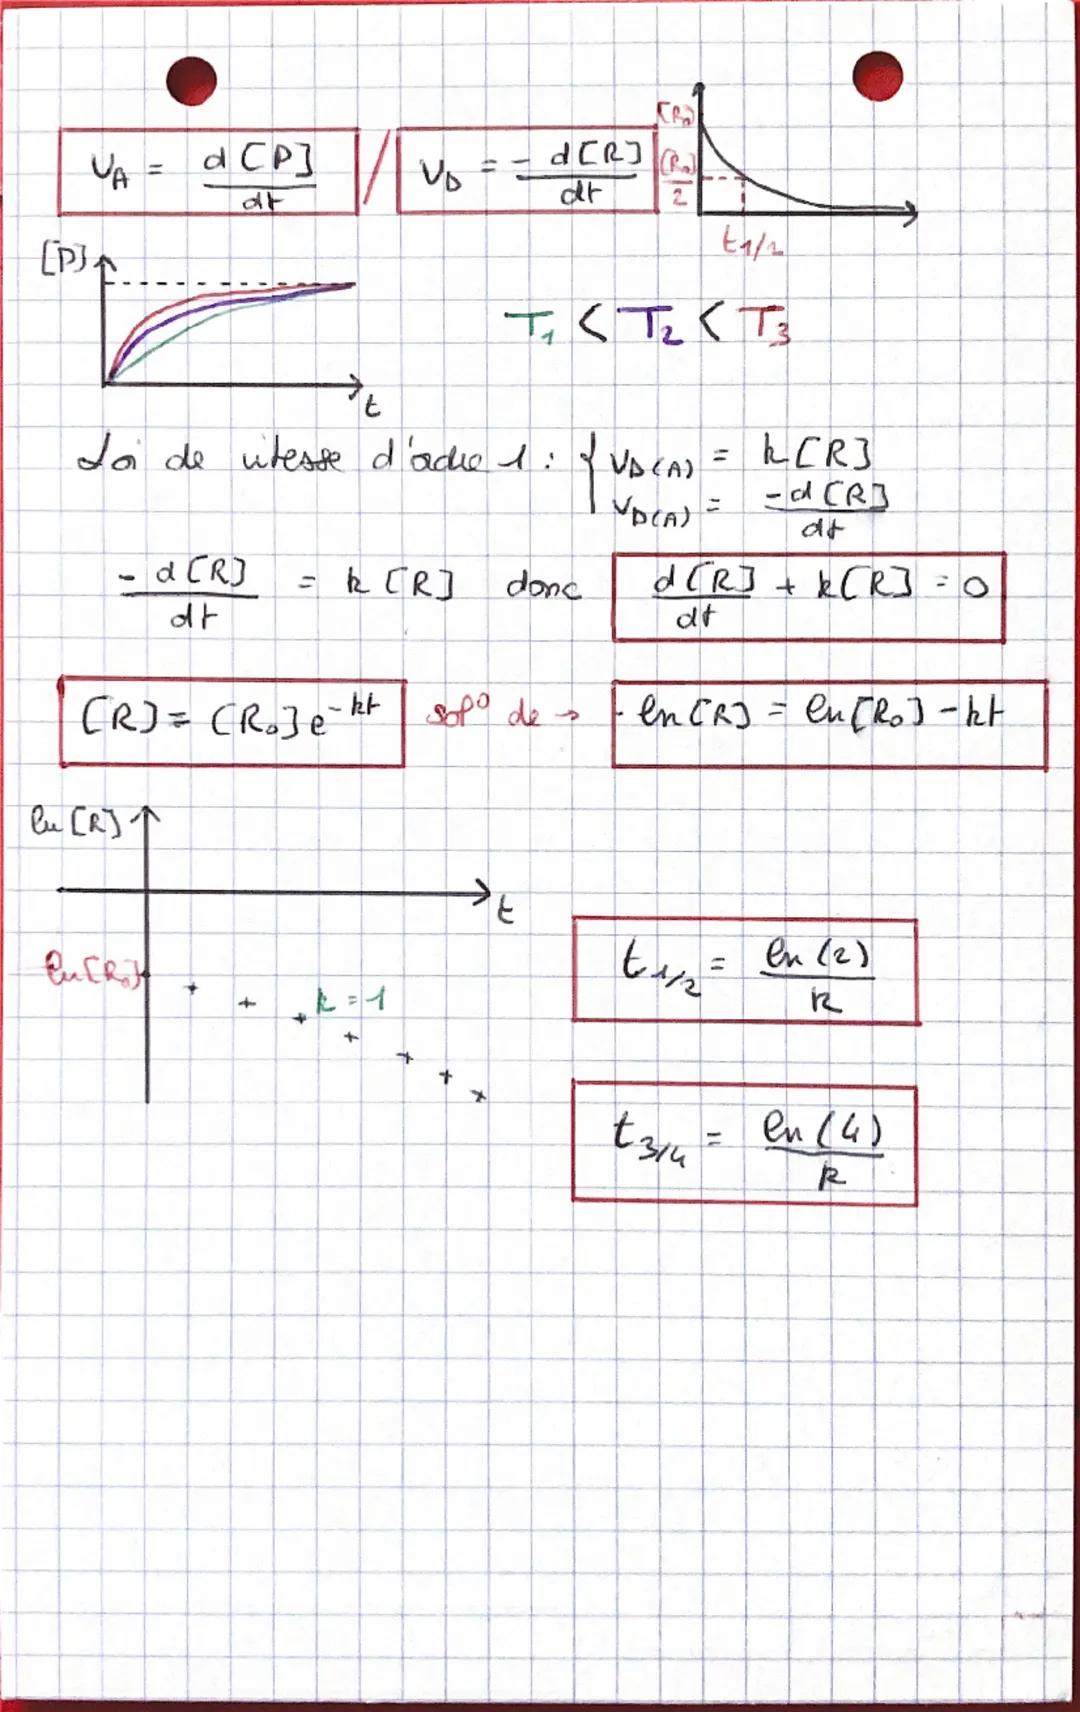 V_A = d[P]/dt / V_D = - d[R]/dt
[R₀]
[R₀]/2
t1/2
[P]
T₁ < T₂ < T₃
t
Loi de vitesse d'ordre 1 : { V_D(A) = k[R]
V_D(A) = -d[R]/dt
- d[R]/dt = k[R] donc d[R]/dt + k[R] = 0
[R] = [R₀]e^-kt sol° de → ln[R] = ln[R₀] - kt
ln[R]
t
ln[R₀]
k = 1
t1/2 = ln(2)/k
t3/4 = ln(4)/k